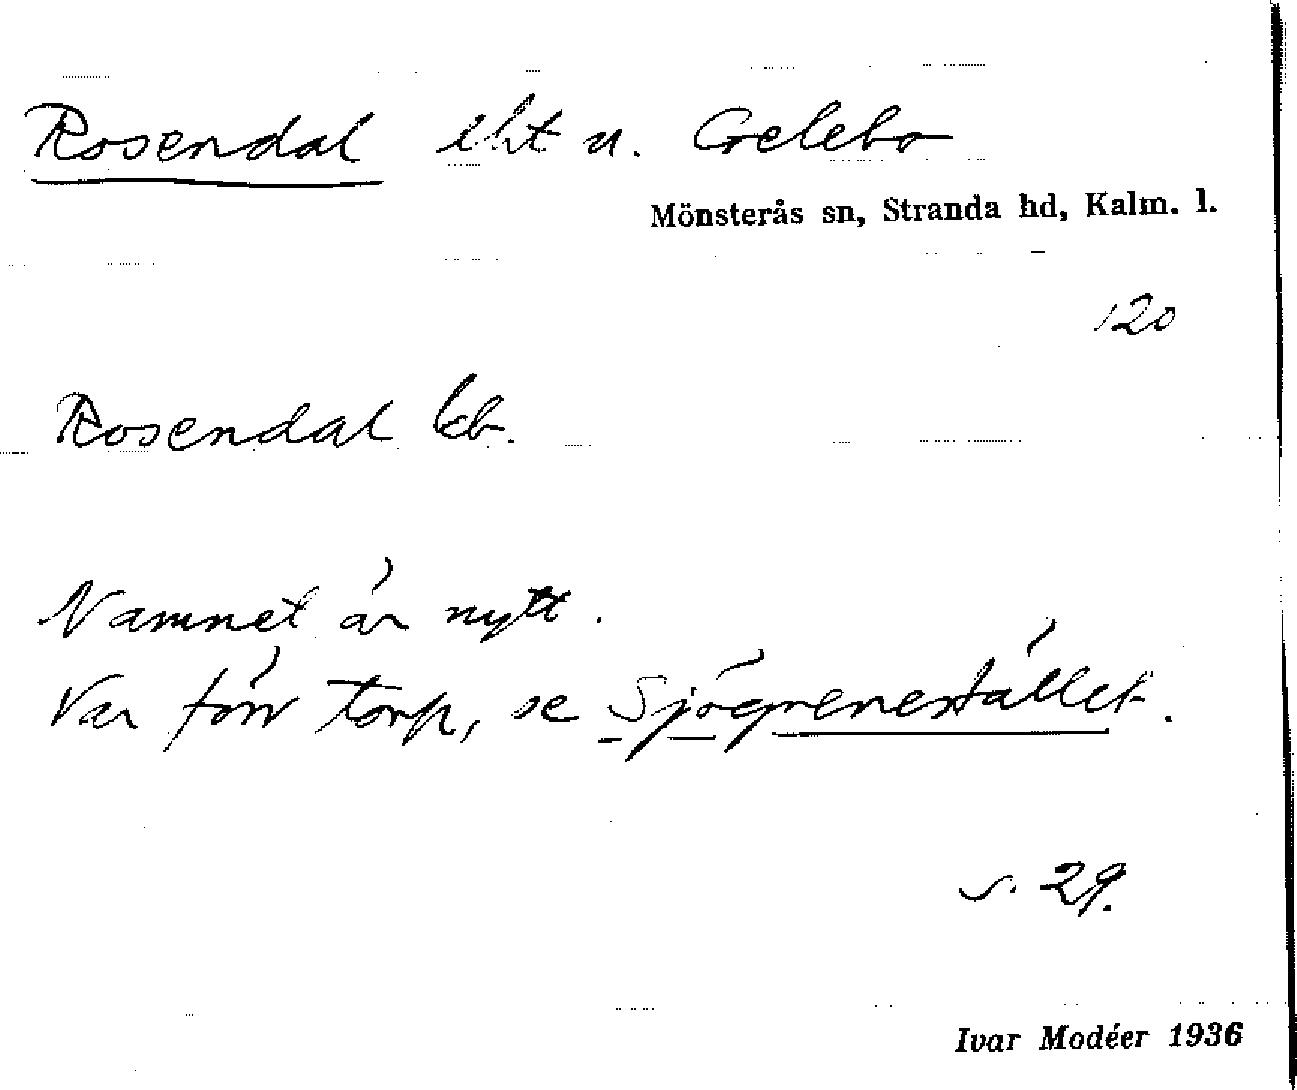 Rosendal lht u. Gelebo
Mönsterås sn, Stranda hd, Kalm. l.
120
Rosendal kb.
Namnet är nytt.
Var förr torp, se Sjögrenestället.
s. 29.
Ivar Modéer 1936